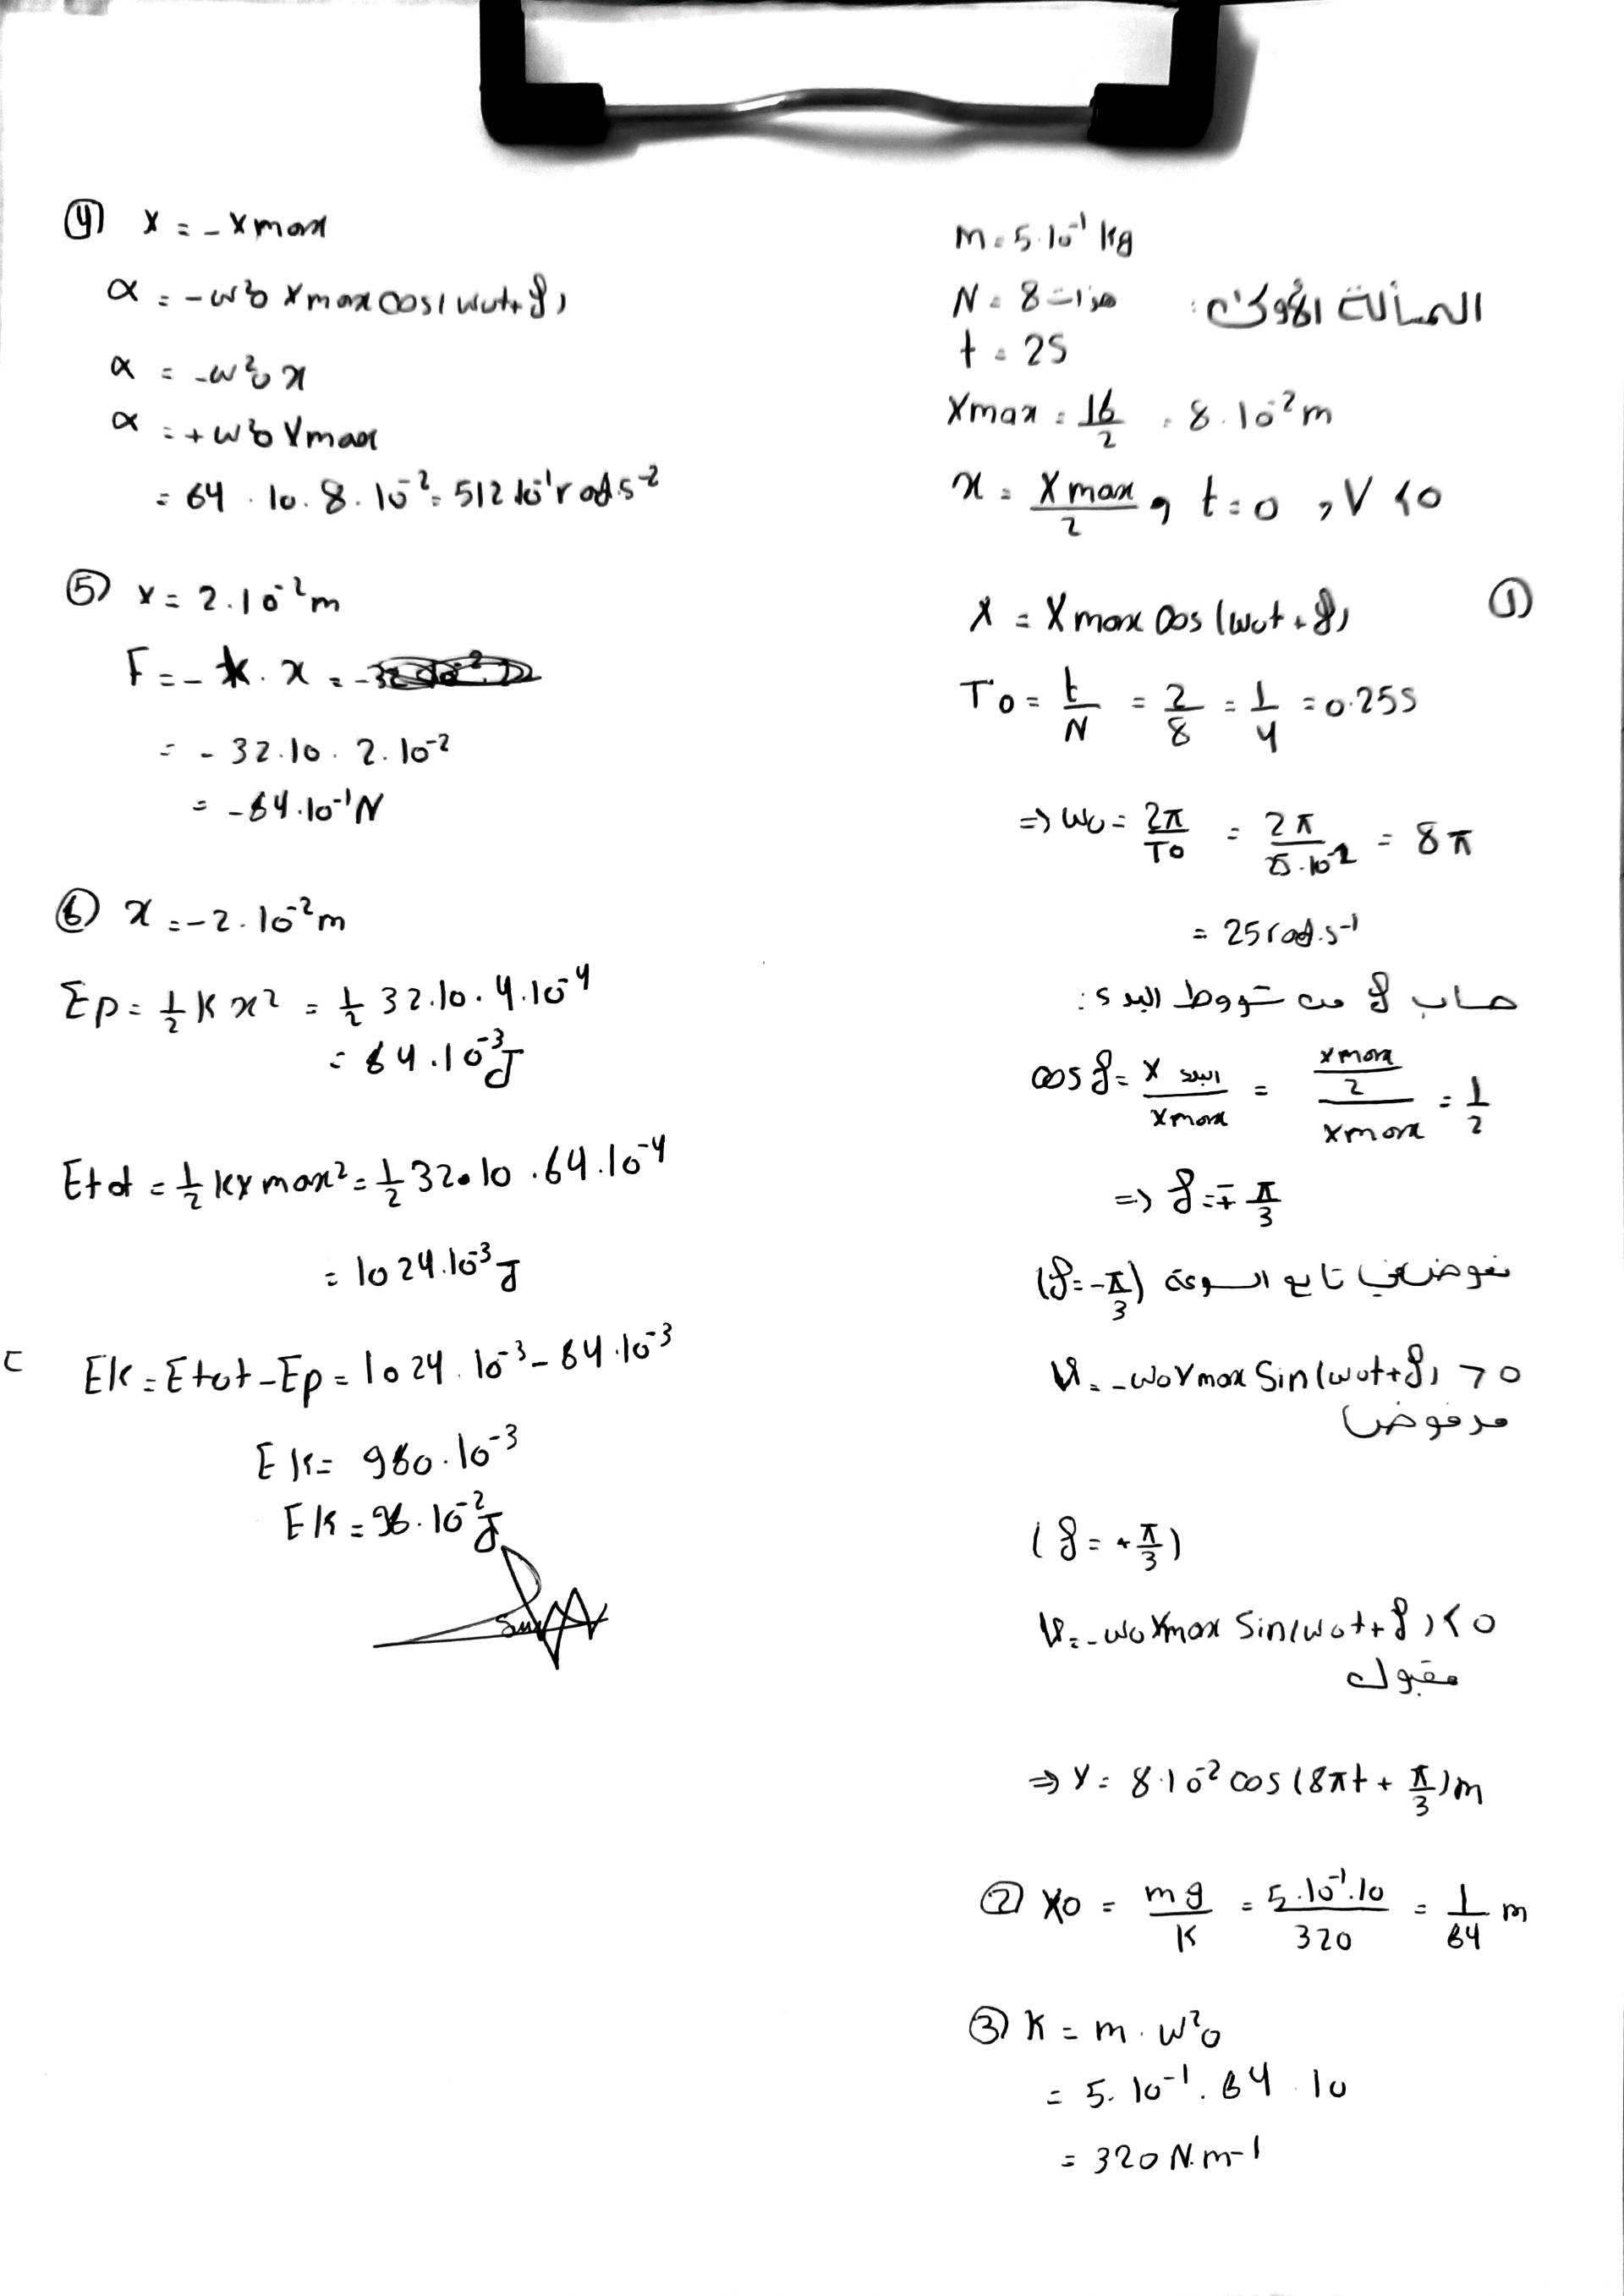 المسألة الأولى:
m = 5.10⁻¹ kg
N = 8 هزات
t = 2s
Xmax = 16/2 = 8.10⁻² m
x = Xmax/2 , t = 0 , V < 0
① X = Xmax cos(ω₀t + φ)
T₀ = t/N = 2/8 = 1/4 = 0.25s
=> ω₀ = 2π/T₀ = 2π/25.10⁻² = 8π
= 25 rad.s⁻¹
حساب φ من شروط البدء:
cos φ = X البدء/Xmax = (Xmax/2)/Xmax = 1/2
=> φ = ∓ π/3
نعوض في تابع السرعة (φ = -π/3)
v = -ω₀Xmax Sin(ω₀t + φ) > 0
مرفوض
(φ = +π/3)
v = -ω₀Xmax Sin(ω₀t + φ) < 0
مقبول
=> X = 8.10⁻² cos(8πt + π/3) m
② X₀ = mg/K = 5.10⁻¹.10/320 = 1/64 m
③ K = m . ω²₀
= 5.10⁻¹ . 64 . 10
= 320 N.m⁻¹
④ X = -Xmax
α = -ω²₀ Xmax cos(ω₀t + φ)
α = -ω²₀ x
α = +ω²₀ Xmax
= 64 . 10 . 8 . 10⁻² = 512.10⁻¹ rad.s⁻²
⑤ X = 2.10⁻² m
F = -k . x =
= -32.10 . 2.10⁻²
= -64.10⁻¹ N
⑥ x = -2.10⁻² m
Ep = 1/2 K x² = 1/2 32.10 . 4.10⁻⁴
= 64.10⁻³ J
Etot = 1/2 kXmax² = 1/2 32.10 . 64.10⁻⁴
= 1024.10⁻³ J
Ek = Etot - Ep = 1024.10⁻³ - 64.10⁻³
Ek = 960.10⁻³
Ek = 96.10⁻² J